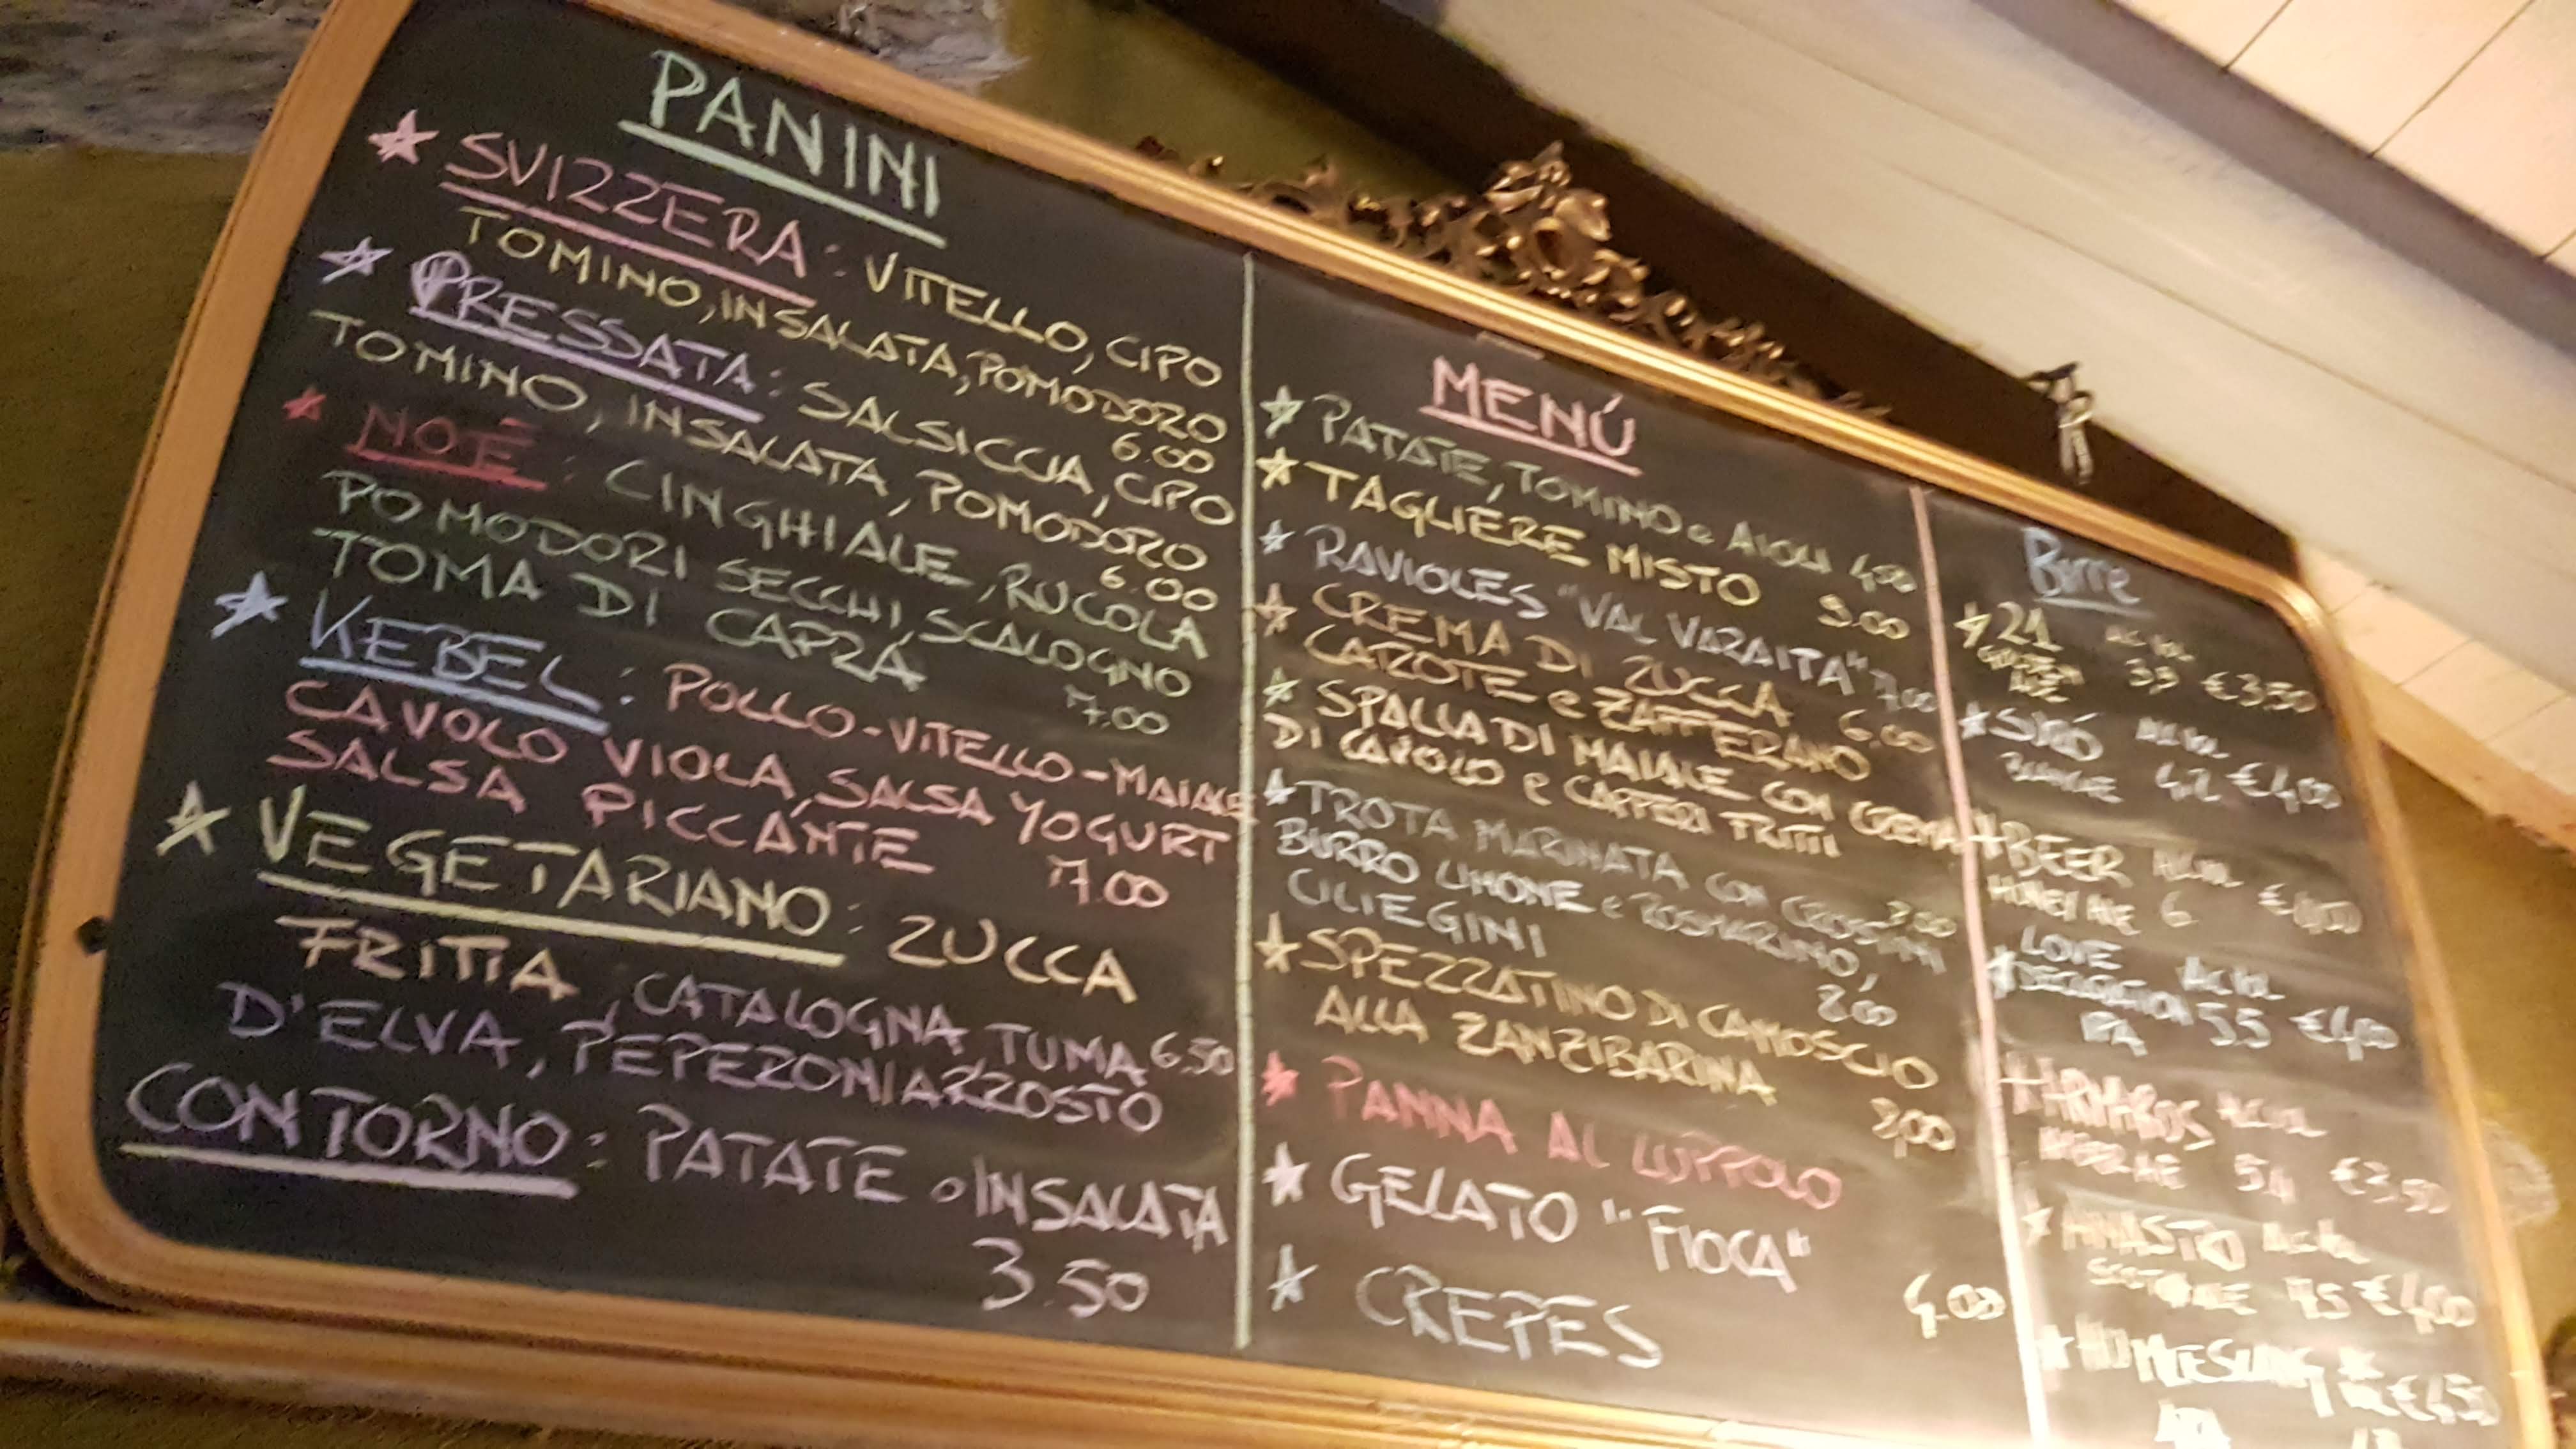 PANINI
SVIZZERA: VITELLO, CIPO
TOMINO, INSALATA, POMODORO
6.00
PRESSATA: SALSICCIA, CIPO
TOMINO, INSALATA, POMODORO
6.00
NOÉ: CINGHIALE, RUCOLA
POMODORI SECCHI, SCALOGNO
TOMA DI CAPRA
7.00
KEBEL: POLLO-VITELLO-MAIALE
CAVOLO VIOLA, SALSA YOGURT
SALSA PICCANTE 7.00
VEGETARIANO: ZUCCA
FRITTA, CATALOGNA, TUMA 6.50
D'ELVA, PEPERONI ARROSTO
CONTORNO: PATATE o INSALATA
3.50
MENÚ
PATATE, TOMINO e AIOLI 4,00
TAGLIERE MISTO 9.00
RAVIOLES "VAL VARAITA" 7,00
CREMA DI ZUCCA 6.00
CAROTE e ZAFFERANO
SPALLA DI MAIALE CON CREMA
DI CAVOLO e CAPPERI FRITTI
TROTA MARINATA CON CROSTINI
BURRO LIMONE e ROSMARINO,
CILIEGINI 8.00
SPEZZATINO DI CAMOSCIO
ALLA ZANZIBARINA
PANNA AL LUPPOLO
GELATO "FIOCA"
4.00
CREPES
Birre
21 ALC VOL
GOLDEN ALE 3,9 €3,50
ALC VOL
BLANCHE 4,2 €4,00
BEER ALC VOL
HONEY ALE 6
LOVE ALC VOL
IPA 5,5 €4,00
ALC VOL
5,4 €3,50
ALC VOL
€4,00